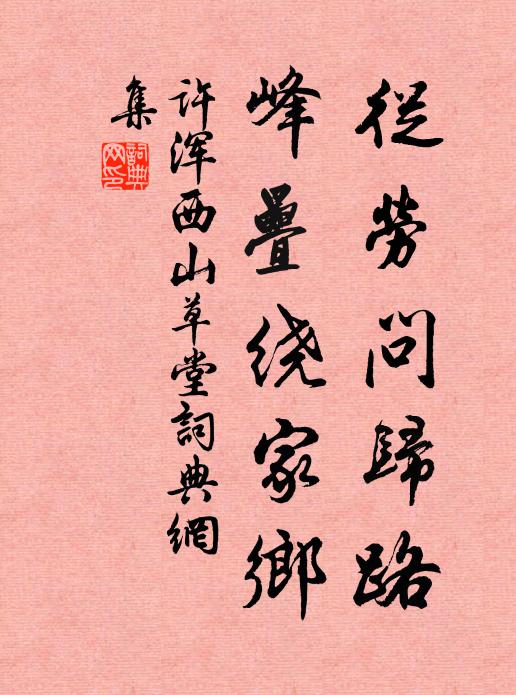 從勞問歸路
峰疊绕家鄉
许浑西山草堂詞典網
集
詞典網印